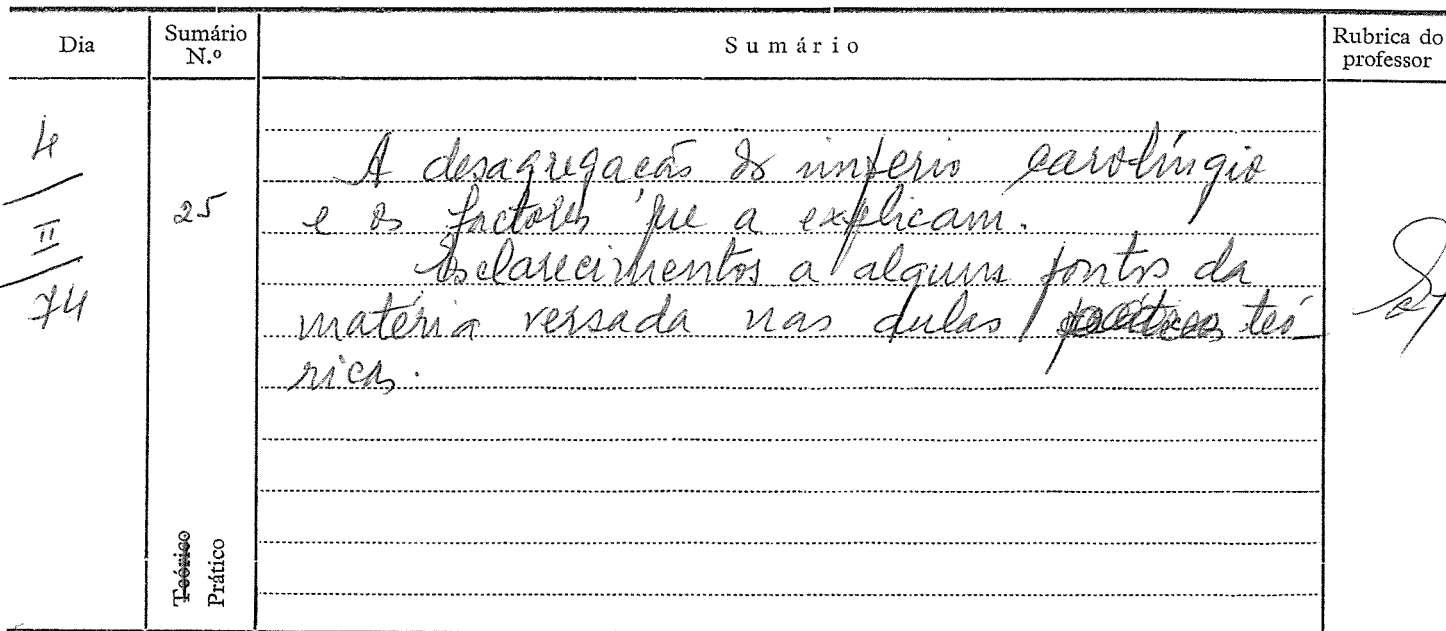 Dia
Sumário N.º
Sumário
Rubrica do professor
4
II
74
25
A desagregação do império carolíngio
e os factores que a explicam.
Esclarecimentos a alguns pontos da
matéria versada nas aulas práticas teó-
ricas.
Teórico
Prático